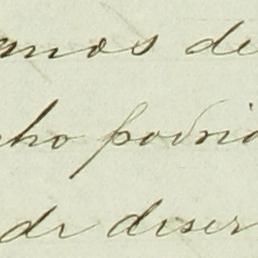 amos de
cho podrid
de diser